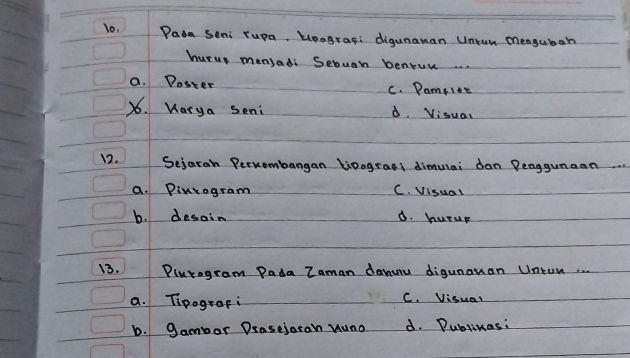 10. Pada seni rupa. tipografi digunakan Untuk mengubah
huruf menjadi Sebuah bentuk ...
a. Poster
c. Pamflet
b. Karya seni
d. Visual
12. Sejarah Perkembangan tipografi dimulai dari Penggunaan ...
a. Piktogram
c. Visual
b. desain
d. huruf
13. Piktogram Pada Zaman dahulu digunakan Untuk ...
a. Tipografi
c. Visual
b. gambar Prasejarah kuno
d. Publikasi